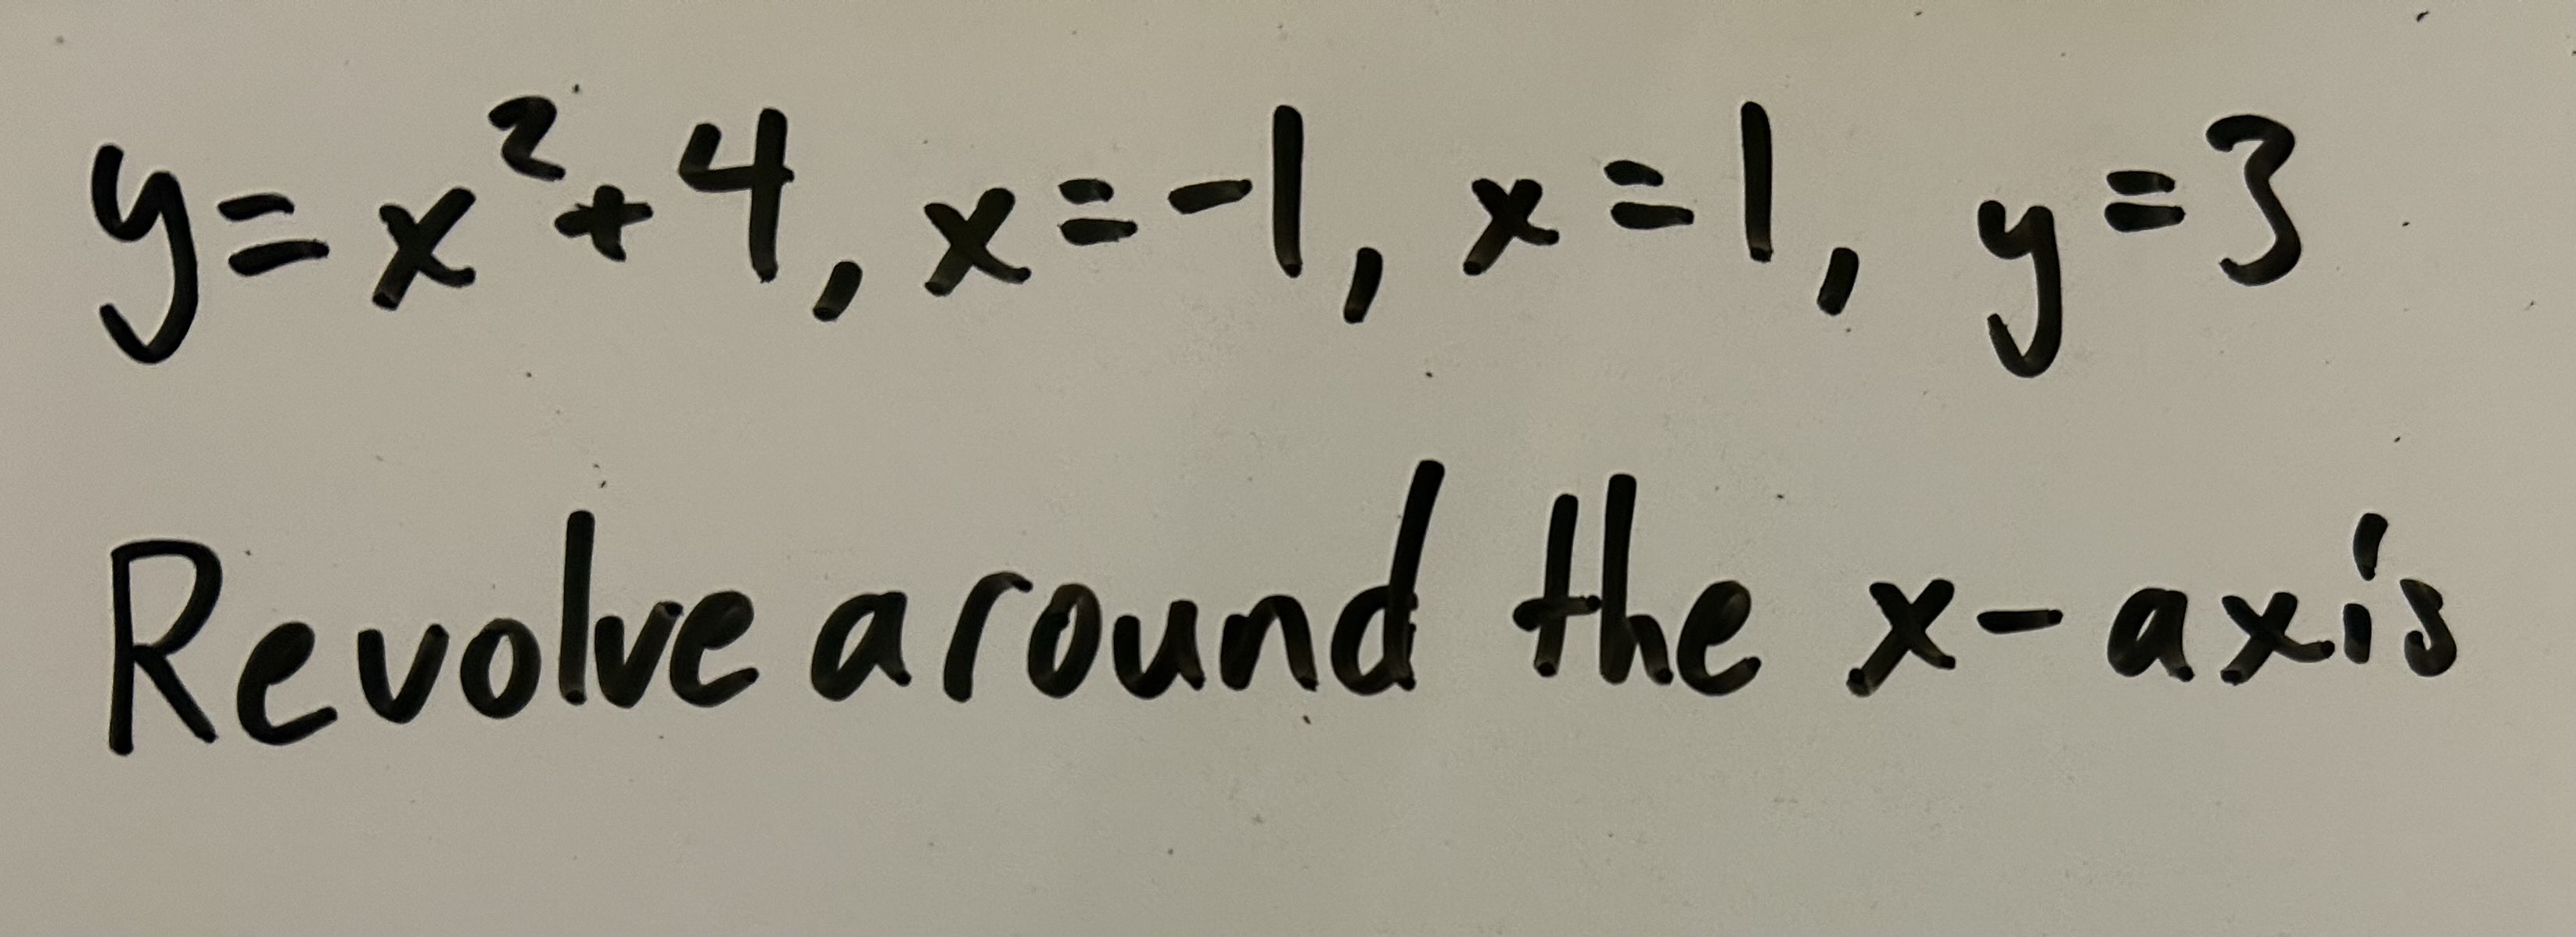 y = x² + 4, x = -1, x = 1, y = 3
Revolve around the x-axis